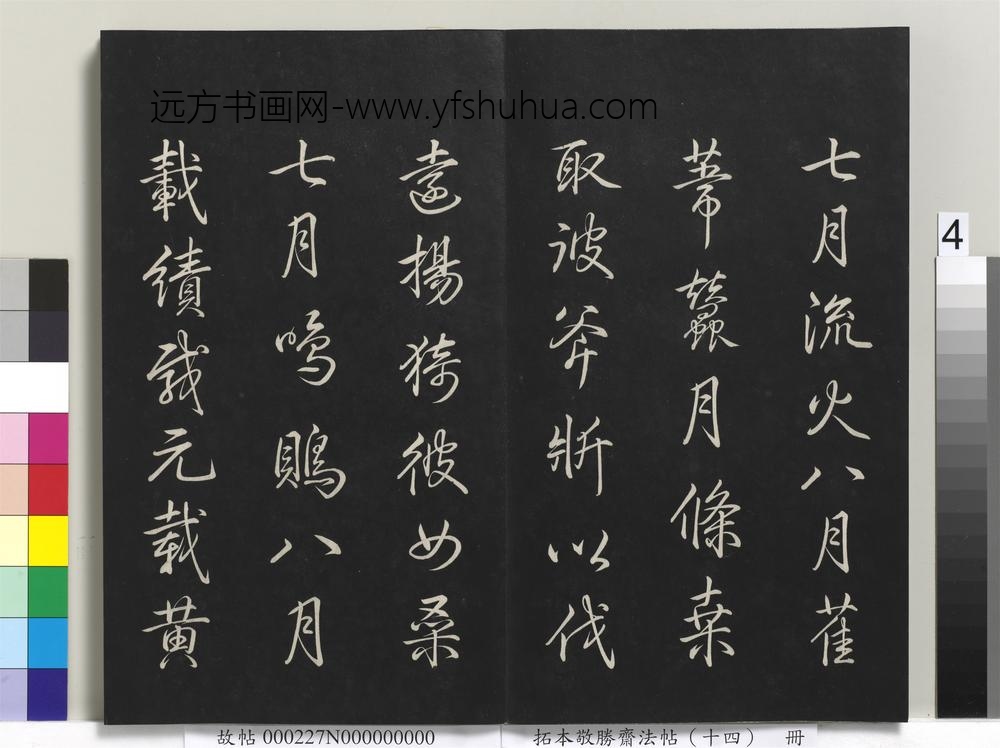 远方书画网-www.yfshuhua.com
七月流火八月萑
葦蠶月條桑
取彼斧斨以伐
遠揚猗彼女桑
七月鳴鵙八月
載績載元載黃
4
故帖 000227N000000000
拓本敬勝齋法帖（十四） 冊